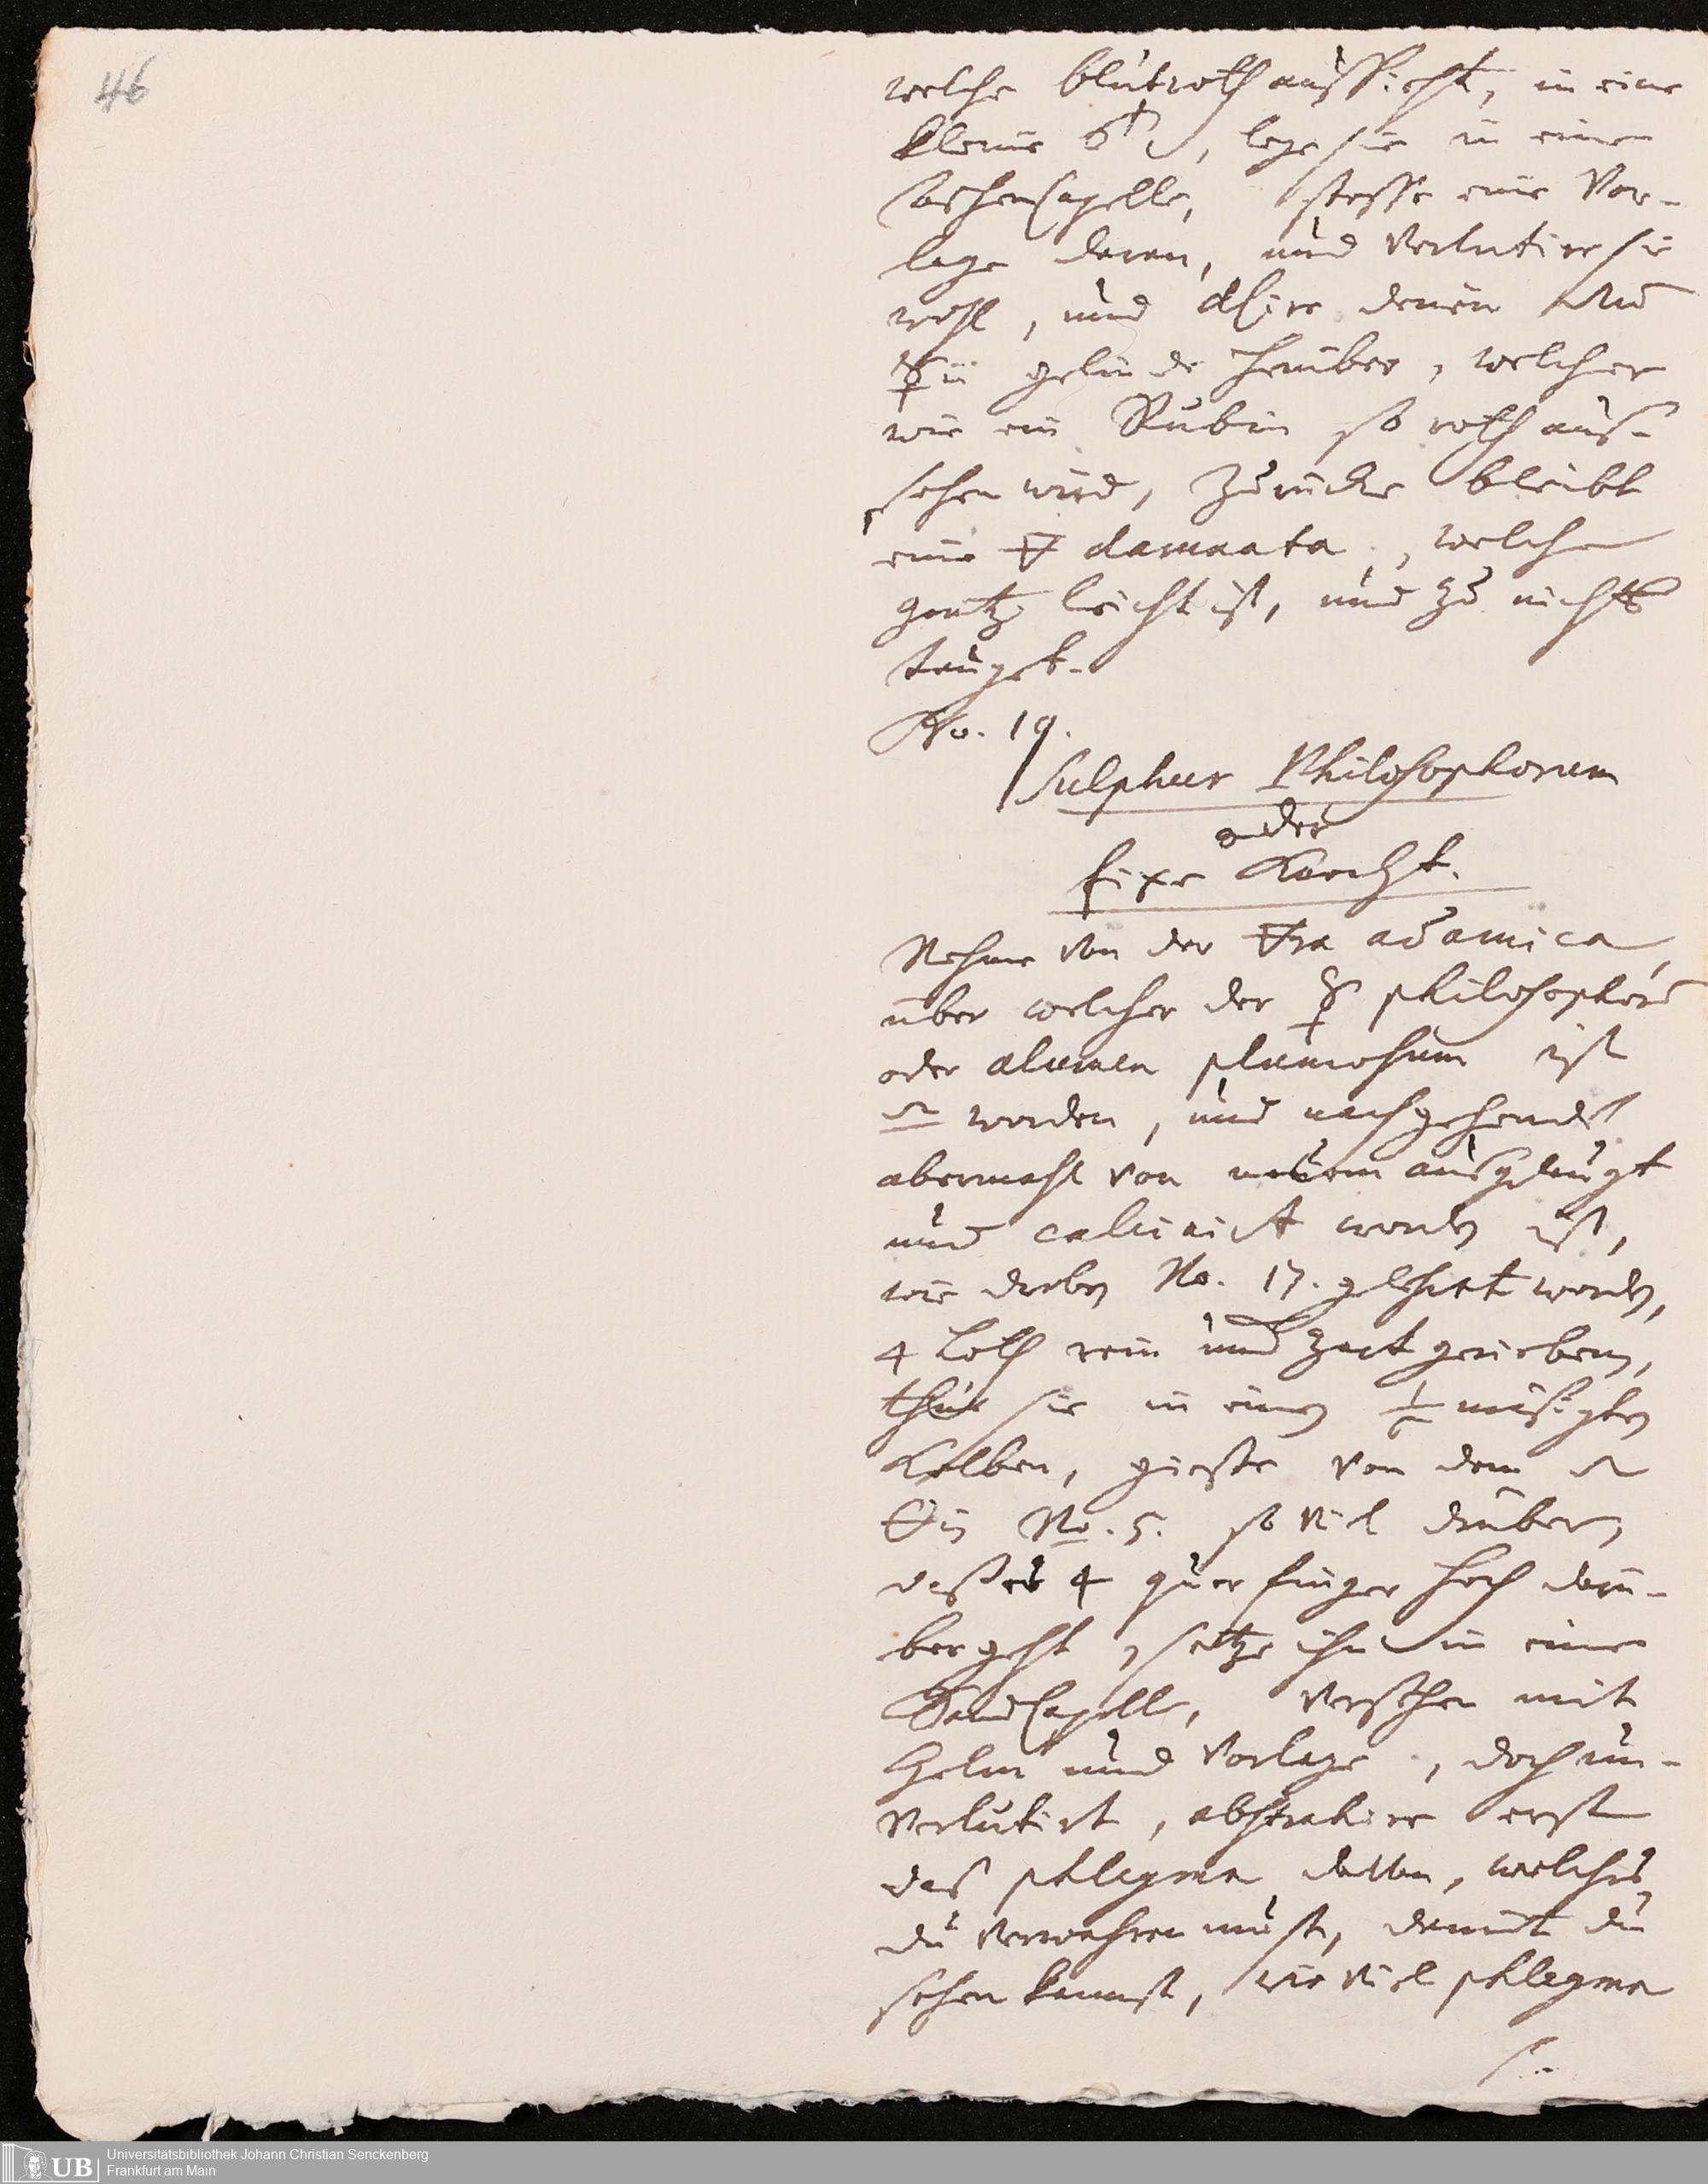 46
welche blutroth aussieht, in eine
kleine, lege sie in eine
aschenCapelle, stosse eine Vor-
lage daran, und verlutire sie
wohl, und dann
☿ii gelinde herüber, welcher
wie ein Rubin so roth aus-
sehen wird, Zurücke bleibt
eine 🜃 damnata, welche
gantz leicht ist, und zu nichts
tauget.
No. 19.
Sulphur Philosophorum
oder
fixe Knecht.
Nehme von der 🜃ra adamica,
über welcher der ☿ philosophor
oder alumen plumosum ist
worden, und nachgehends
abermahl von neuem ausgelaugt
und calcinirt worden ist,
wie droben No. 17. gelehret worden,
4 Loth rein und zart gerieben,
thue sie in einen mäsigten
Kolben, giesse von dem
No. 5. so viel darüber,
daß es 4 quer finger hoch darü-
ber geht, setze ihn in eine
SandCapelle, versehen mit
Helm und Vorlage, doch un-
verlutirt, abstrahire erst
das phlegma davon, welches
du verwahren must, damit du
sehen kannst, wie viel phlegma
UB
Universitätsbibliothek Johann Christian Senckenberg
Frankfurt am Main